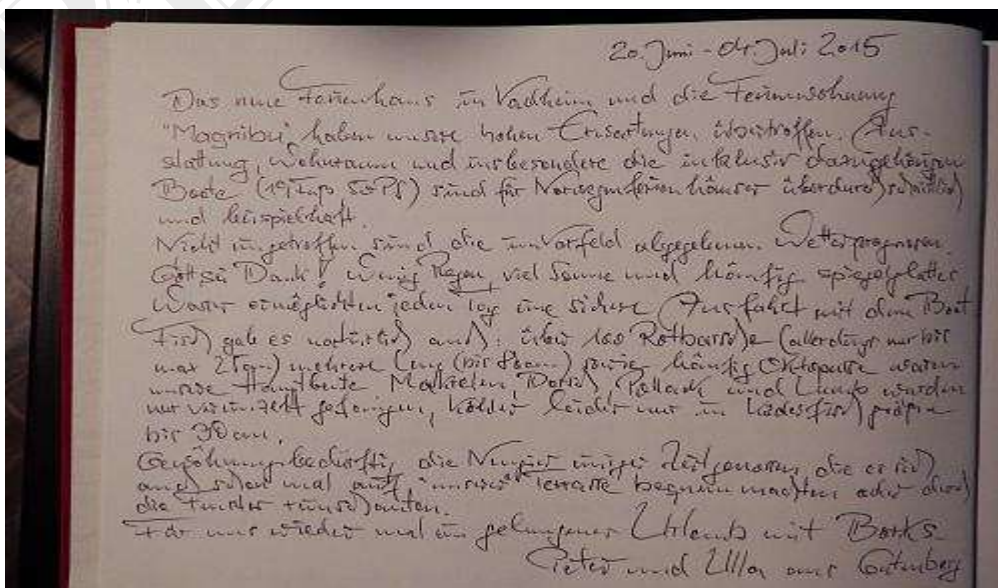 20. Juni - 04. Juli 2015
Das neue Ferienhaus in Vadheim und die Ferienwohnung
"Magnibu" haben unsere hohen Erwartungen übertroffen. Aus-
stattung, Wohnraum und insbesondere die inklusiv dazugehörigen
Boote (19 Fuß 50 PS) sind für Norwegenferienhäuser überdurchschnittlich
und beispielhaft.
Nicht eingetroffen sind die im Vorfeld abgegebenen Wetterprognosen.
Gott sei Dank! Wenig Regen, viel Sonne und häufig spiegelglattes
Wasser ermöglichten jeden Tag eine sichere Ausfahrt mit dem Boot
Fisch gab es natürlich auch: über 100 Rotbarsche (allerdings nur bis
max 2 kg) mehrere Leng (bis 80cm) sowie häufig waren
unsere Hauptbeute Makrelen, Dorsch, Pollack und Lumb wurden
nur vereinzelt gefangen, Köhler leider nur in
bis 30 cm.
Gewöhnungsbedürftig die Neugier einiger Zeitgenossen, die es sich
auch schon mal auf "unserer" Terrasse bequem machten oder durch
die Fenster
Für uns wieder mal ein gelungener Urlaub mit Borks.
Peter und Ulla aus